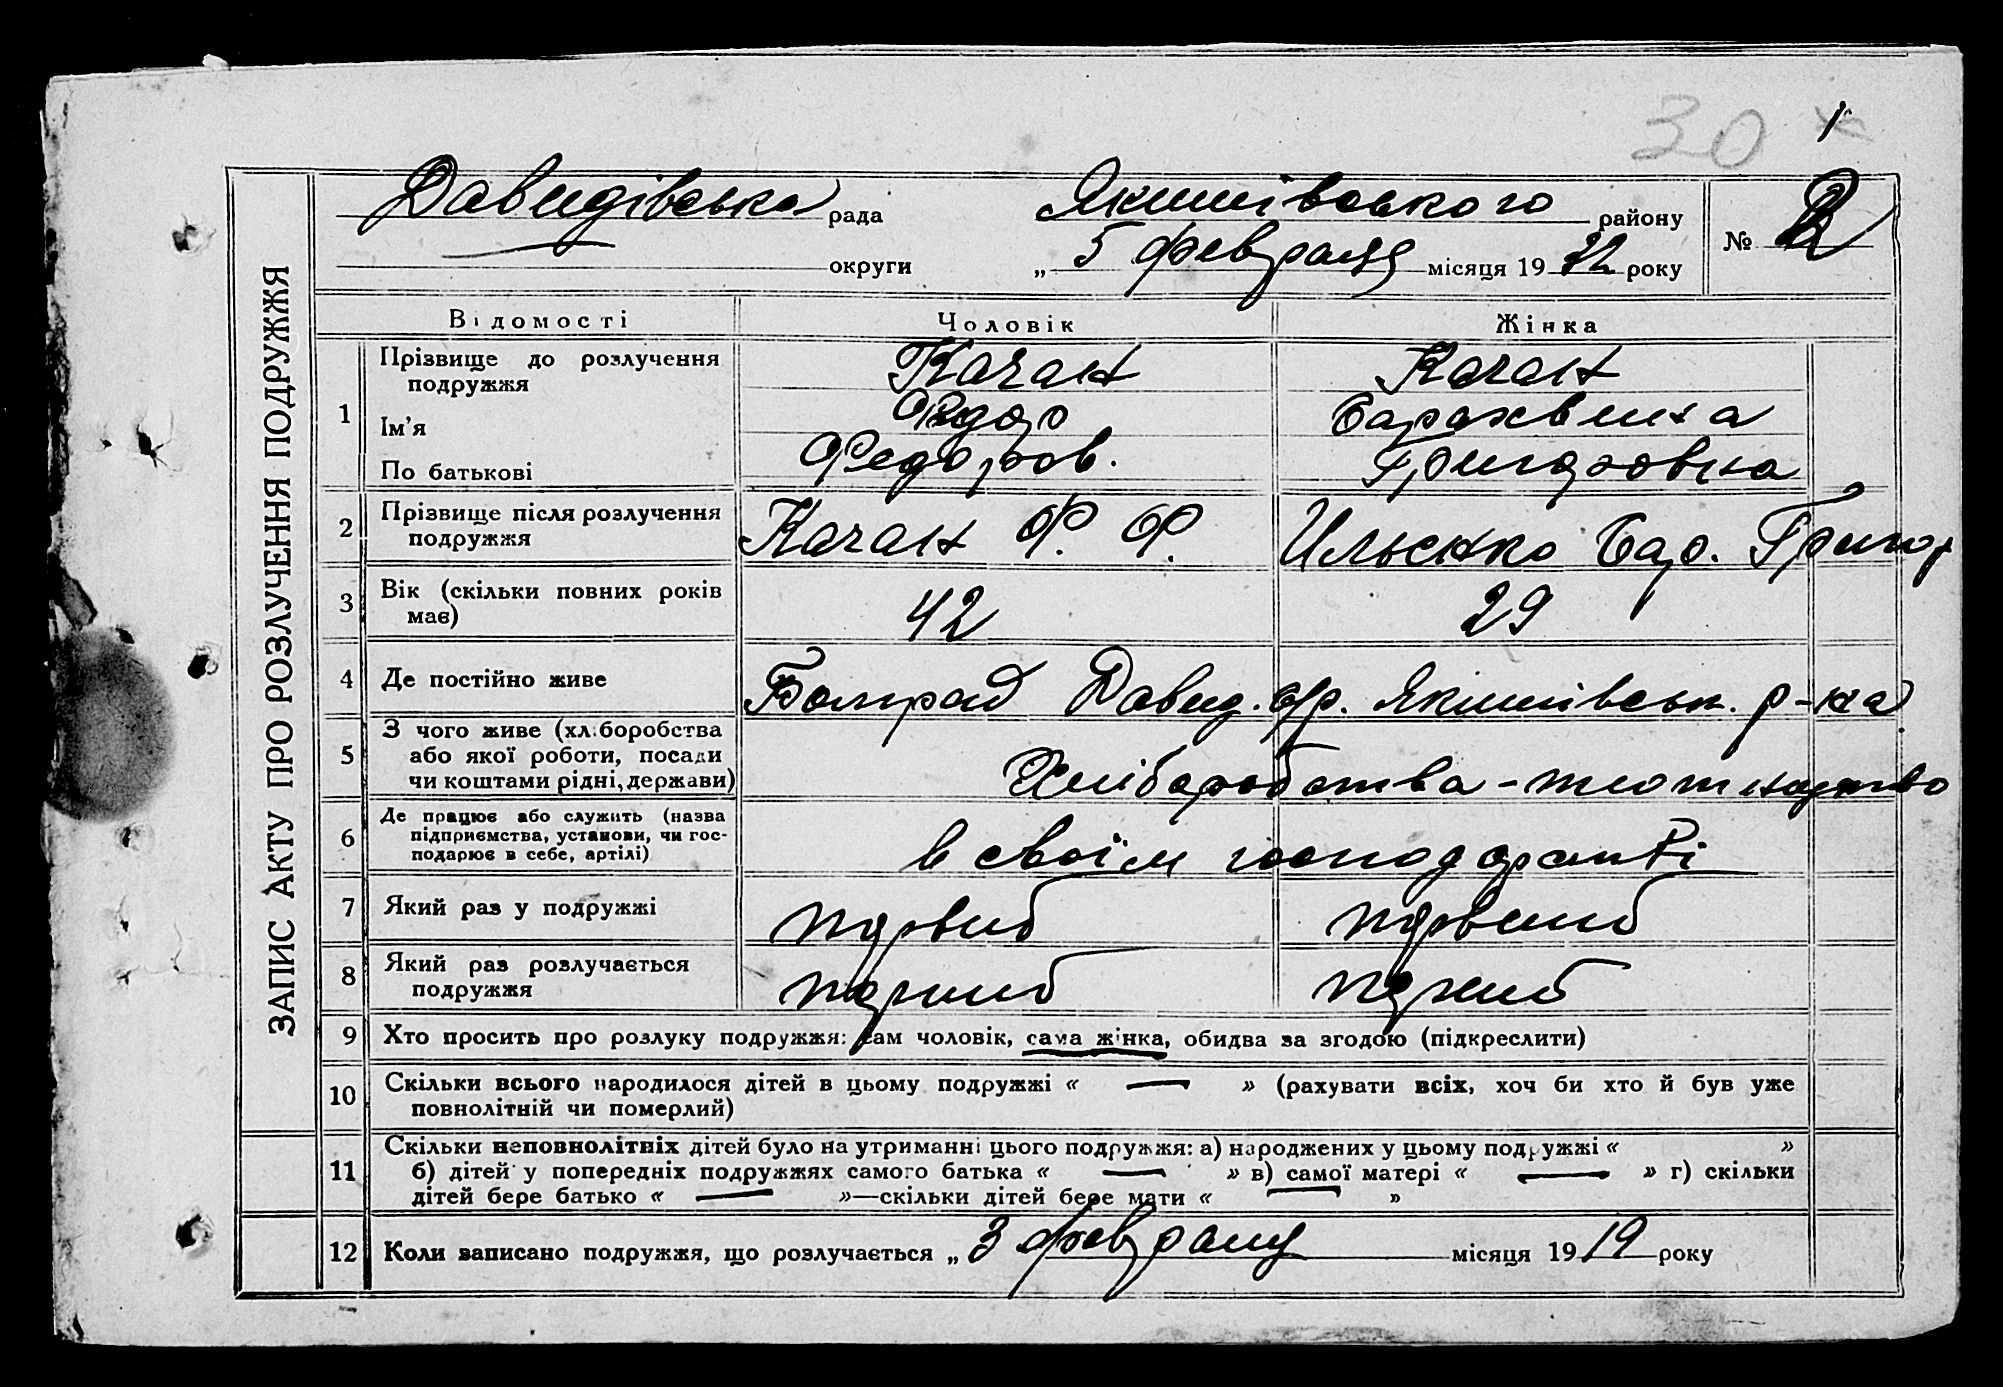 30
1
ЗАПИС АКТУ ПРО РОЗЛУЧЕННЯ ПОДРУЖЖЯ
Давидівська рада Якимівського району
№ 2
округи „ 5 февраля місяця 19 році
Відомості Чоловік Жінка
1 Прізвище до розлучення подружжя Качан Качан
Ім'я Федор
По батькові Федоров. Григоровна
2 Прізвище після розлучення подружжя Качан Ф. Ф. Ильенко Вар. Григор
3 Вік (скільки повних років має) 42 29
4 Де постійно живе Болград Давид. с/р. Якимівськ. р-на
5 З чого живе (хліборобства або якої роботи, посади чи коштами рідні, держави) Хліборобства -
6 Де працює або служить (назва підприємства, установи, чи господарює в себе, артілі) в своїм господарстві
7 Який раз у подружжі первий первий
8 Який раз розлучається подружжя первий первий
9 Хто просить про розлуку подружжя: сам чоловік, сама жінка, обидва за згодою (підкреслити)
10 Скільки всього народилося дітей в цьому подружжі « — » (рахувати всіх, хоч би хто й був уже
повнолітній чи померлий)
11 Скільки неповнолітніх дітей було на утриманні цього подружжя: а) народжених у цьому подружжі « »
б) дітей у попередніх подружжях самого батька « — » в) самої матері « — » г) скільки
дітей бере батько « — »—скільки дітей бере мати « — »
12 Коли записано подружжя, що розлучається „ 3 февраля місяця 1919 року